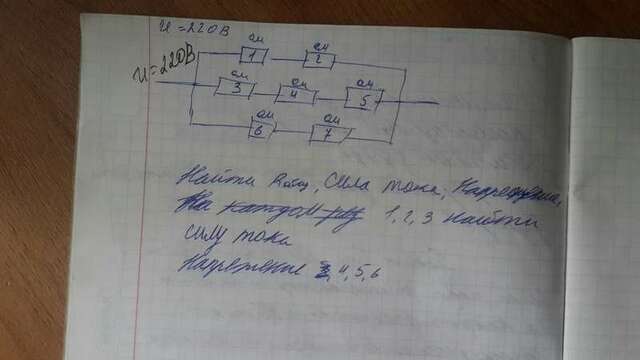 U = 220В
U = 220В
ом ом
1 2
ом ом ом
3 4 5
ом ом
6 7
Найти Rобщ, Сила тока, Напрежение,
На каждом рез 1, 2, 3 найти
силу тока
Напрежение 3, 4, 5, 6